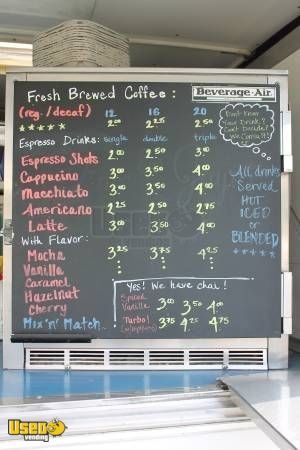 Fresh Brewed Coffee:
Beverage-Air
(reg./decaf) 12 16 20
2.00 2.25 2.50
Don't Know
Your Drink?
Can't Decide?
Espresso Drinks: single double triple
Espresso Shots 2.00 2.50 3.00
Cappucino 3.00 3.50 4.00
Macchiato 3.00 3.50 4.00
Americano 2.25 2.50 2.75
Latte 3.00 3.50 4.00
With Flavor:
Mocha 3.25 3.75 4.25
Vanilla
Caramel
Hazelnut
Cherry
Mix 'n' Match
All drinks
Served
HOT
ICED
or
BLENDED
Yes! We have chai!
Spiced
Vanilla 3.00 3.50 4.00
Turbo!
(w/espresso) 3.75 4.25 4.75
Used
vending